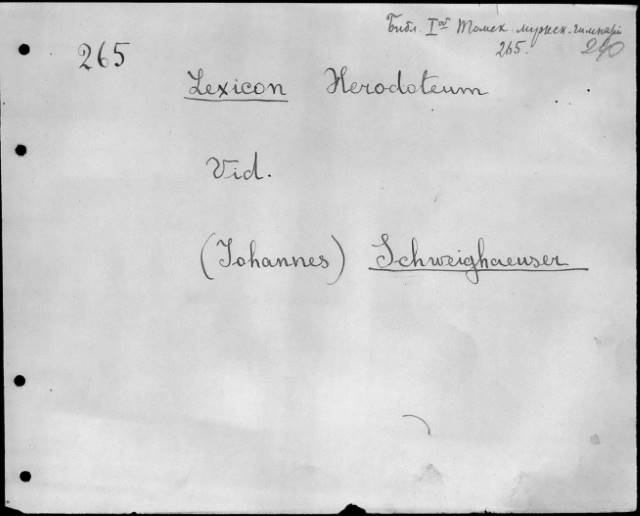 Библ. Iой Томск. мужск. гимназіи
265. 240
265
Lexicon Herodoteum
Vid.
(Johannes) Schweighaeuser